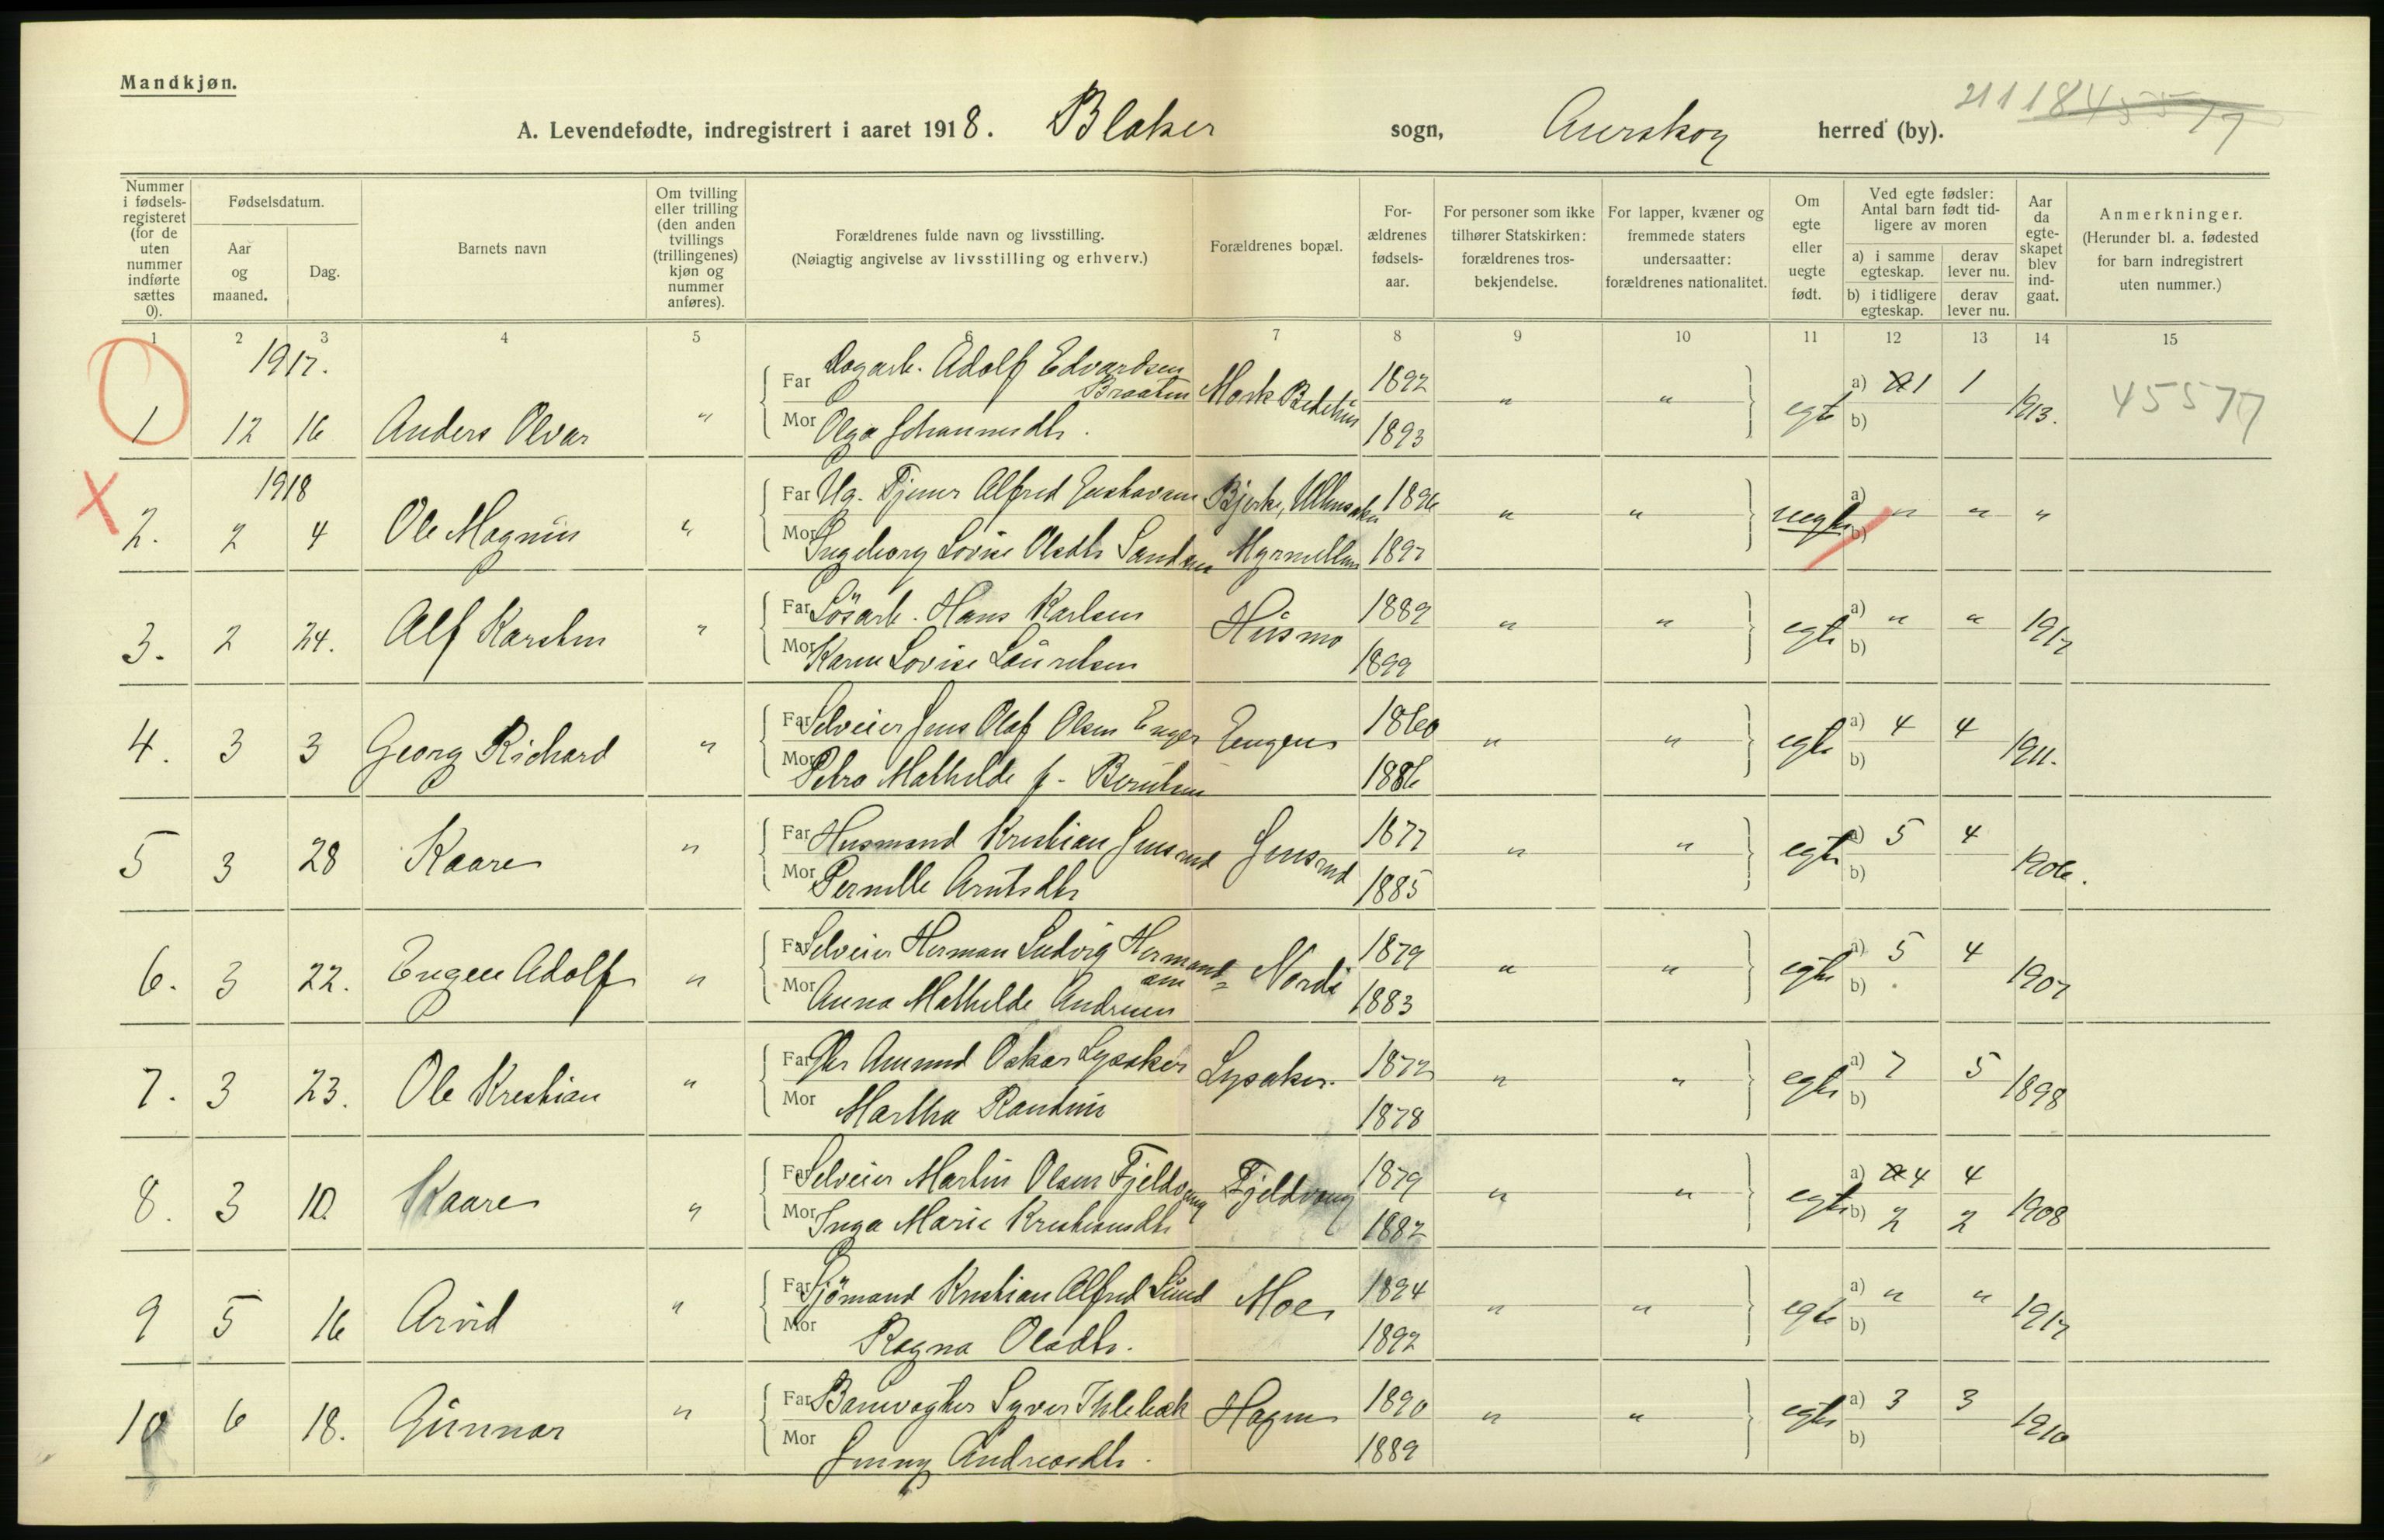 Mandkjøn.
A. Levendefødte, indregistrert i aaret 1918. Blaker sogn, Aurskog herred (by).
Nummer i fødselsregisteret (for de uten nummer indførte sættes 0).
Fødselsdatum.
Aar og maaned.
Dag.
Barnets navn
Om tvilling eller trilling (den anden tvillings (trillingenes) kjøn og nummer anføres).
Forældrenes fulde navn og livsstilling.
(Nøiagtig angivelse av livsstilling og erhverv.)
Forældrenes bopæl.
Forældrenes fødselsaar.
For personer som ikke tilhører Statskirken: forældrenes trosbekjendelse.
For lapper, kvæner og fremmede staters undersaatter: forældrenes nationalitet.
Om egte eller uegte født.
Ved egte fødsler: Antal barn født tidligere av moren
a) i samme egteskap. derav lever nu.
b) i tidligere egteskap. derav lever nu.
Aar da egteskapet blev indgaat.
Anmerkninger.
(Herunder bl. a. fødested for barn indregistrert uten nummer.)
1 2 3 4 5 6 7 8 9 10 11 12 13 14 15
1917.
Far Dagarb. Adolf Edvardsen Braaten 1892 a) 1 1
1 12 16 Anders Olvar " Mor Olga Johannesdtr. 1893 " " egte b) 1913. 45577
1918
Far Ug. Tjener Alfred Gustavsen Bjerke, Ullensaker 1896 a)
2. 2 4 Ole Magnus " Mor Ingeborg Lovise Olsdtr 1897 " " uegte b) " " "
Far Løsarb. Hans Karlsen Husmo 1889 a) " "
3. 2 24. Alf Karsten " Mor Karen Lovise Lauritsen 1899 " " egte b) 1917
Far Selveier Jens Olaf Olsen Enger Engen 1860 a) 4 4
4. 3 3 Georg Richard " Mor Petra Mathilde f. Berntsen 1886 " " egte b) 1911.
Far Husmand Kristian Jensrud Jensrud 1877 a) 5 4
5 3 28 Kaare " Mor Pernille Arntsdtr 1885 " " egte b) 1906.
Far Selveier Herman Ludvig Hermansen 1879 a) 5 4
6. 3 22. Eugen Adolf " Mor Anna Mathilde Andresen 1883 " " egte b) 1907
Far Gbr Amund Oskar Lysaker Lysaker. 1872 a) 7 5
7. 3 23. Ole Kristian " Mor Martha 1878 " " egte b) 1898
Far Selveier Martin Olsen Fjeldvang Fjeldvang 1879 a) 4 4
8. 3 10. Kaare " Mor Inga Marie Kristiansdtr 1882 " " egte b) 2 2 1908
Far Sjømand Kristian Alfred Lund Moe 1894 a) " "
9 5 16 Arvid " Mor Ragna Olsdtr. 1892 " " egte b) 1917
Far Banevogter Syver Ihlebæk Hagen 1890 a) 3 3
10 6 18. Gunnar " Mor Jenny Andreasdtr. 1889 " " egte b) 1910